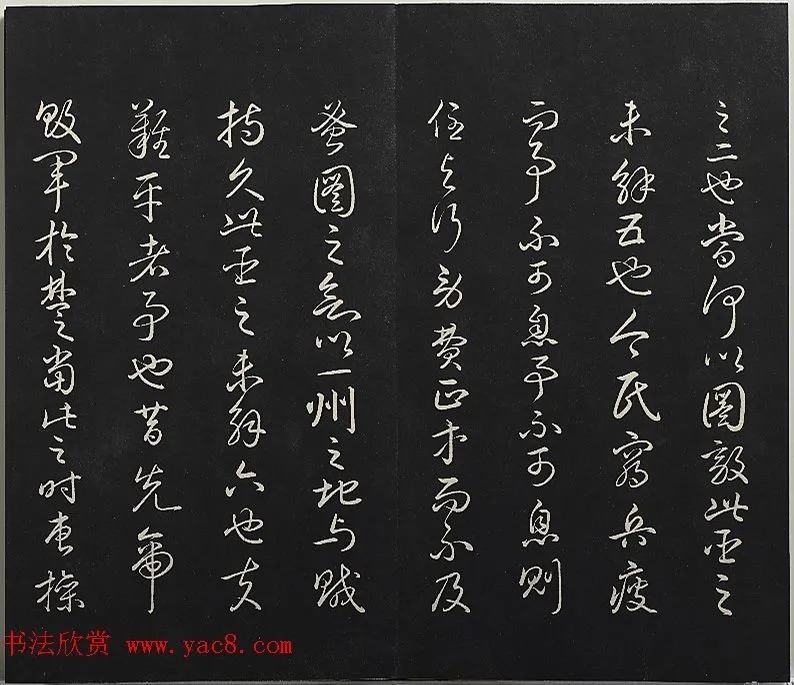 之二也當何以圖敵此臣之
未解五也今民窮兵疲
而事不可息事不可息則
住与行勞費正等而不及
蚤圖之欲以一州之地与賊
持久此臣之未解六也夫
難平者事也昔先帝
敗軍於楚當此之時曹操
书法欣赏 www.yac8.com